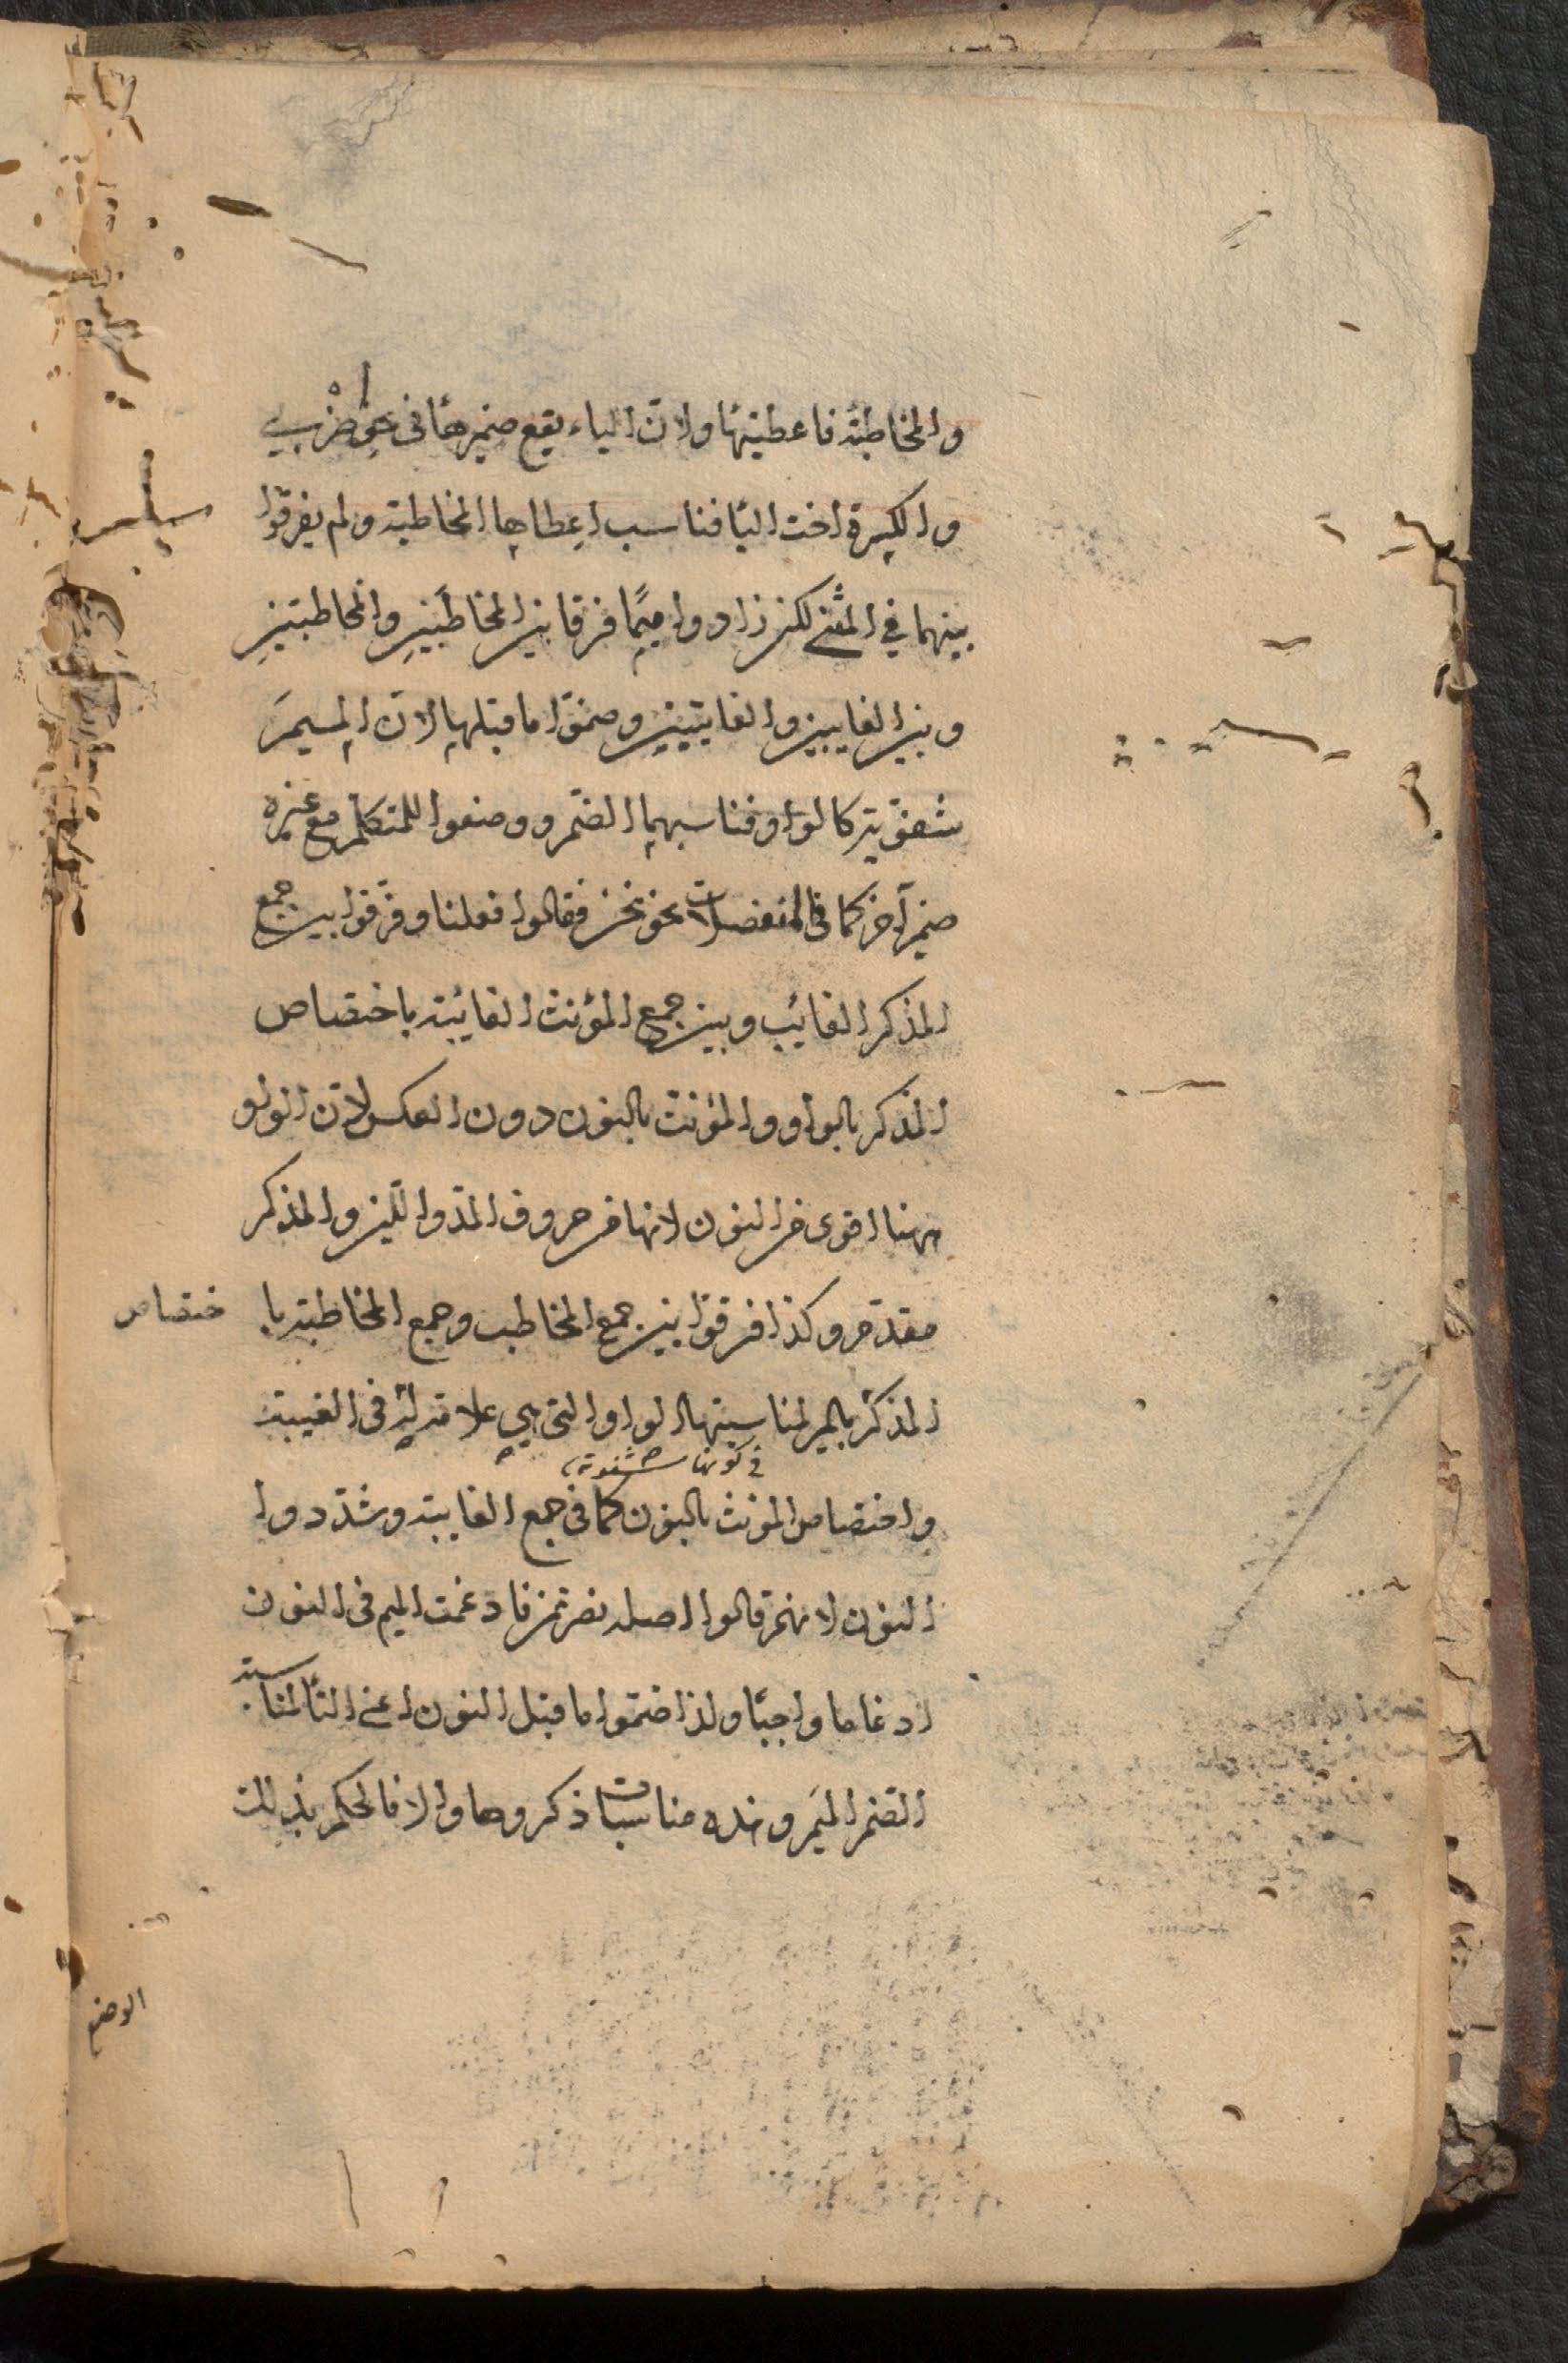 والمخاطبة فاعطيتها ولانّ الياء يقع ضميرها في نحو اضْربي
والكسرة اخت اليا فناسب اعطاها المخاطبة ولم يفرقوا
بينهما في المثنى لكن زادوا ميمًا فرقا بين المخاطبَينِ والمخاطبتينِ
وبين الغايبين والغايبتينِ وضمّوا ما قبلها لانّ الميمَ
شفويّة كالواو فناسبها الضمّ ووضعوا للمتكلّم مع غيره
ضميرا آخر كما في المنفصلات نحو نحن فقالوا فعلنا وفرّقوا بين جمع
المذكر الغائب وبين جمع المؤنث الغائبة باختصاص
المذكر بالواو والمؤنث بالنون دون العكس لانّ الواو
ههنا اقوى من النون لانها من حروف المدّ واللّين والمذكر
مقدّم وكذا فرقوا بين جمع المخاطب وجمع المخاطبة با ختصاص
المذكر بالميم لمناسبتها الواو التي هي علامة له في الغيبة
في كونها شفوية
واختصاص المونث بالنون كما في جمع الغايبة وشدّدوا
النون لانهم قالوا اصله نصرتمن فادغمت الميم في النون
ادغاما واجبًا ولذا ضمّوا ما قبل النون اعني التا لمناسبة
الضم الميم وهذه مناسبات ذكروها والا فالحكم بذلك
الوضع